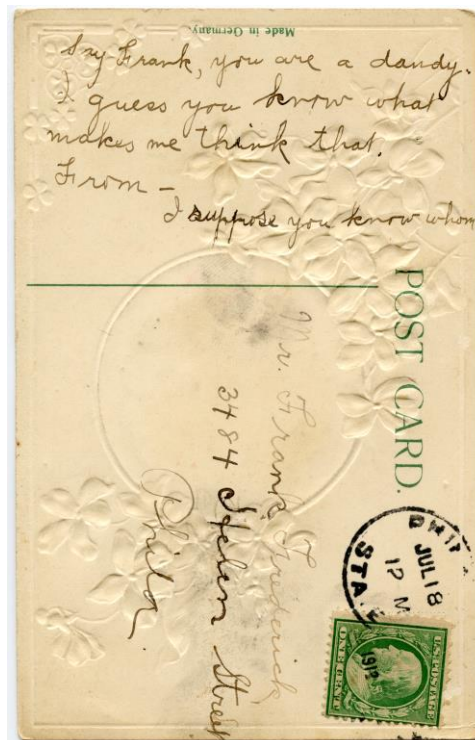 Made in Germany.
Say Frank, you are a dandy.
I guess you know what
makes me think that.
From —
I suppose you know whom
POST CARD.
Mr. Frank Frederick
3484 Helen Street
Phila
JUL 18
12 M
1912
STA.
U.S. POSTAGE
ONE CENT